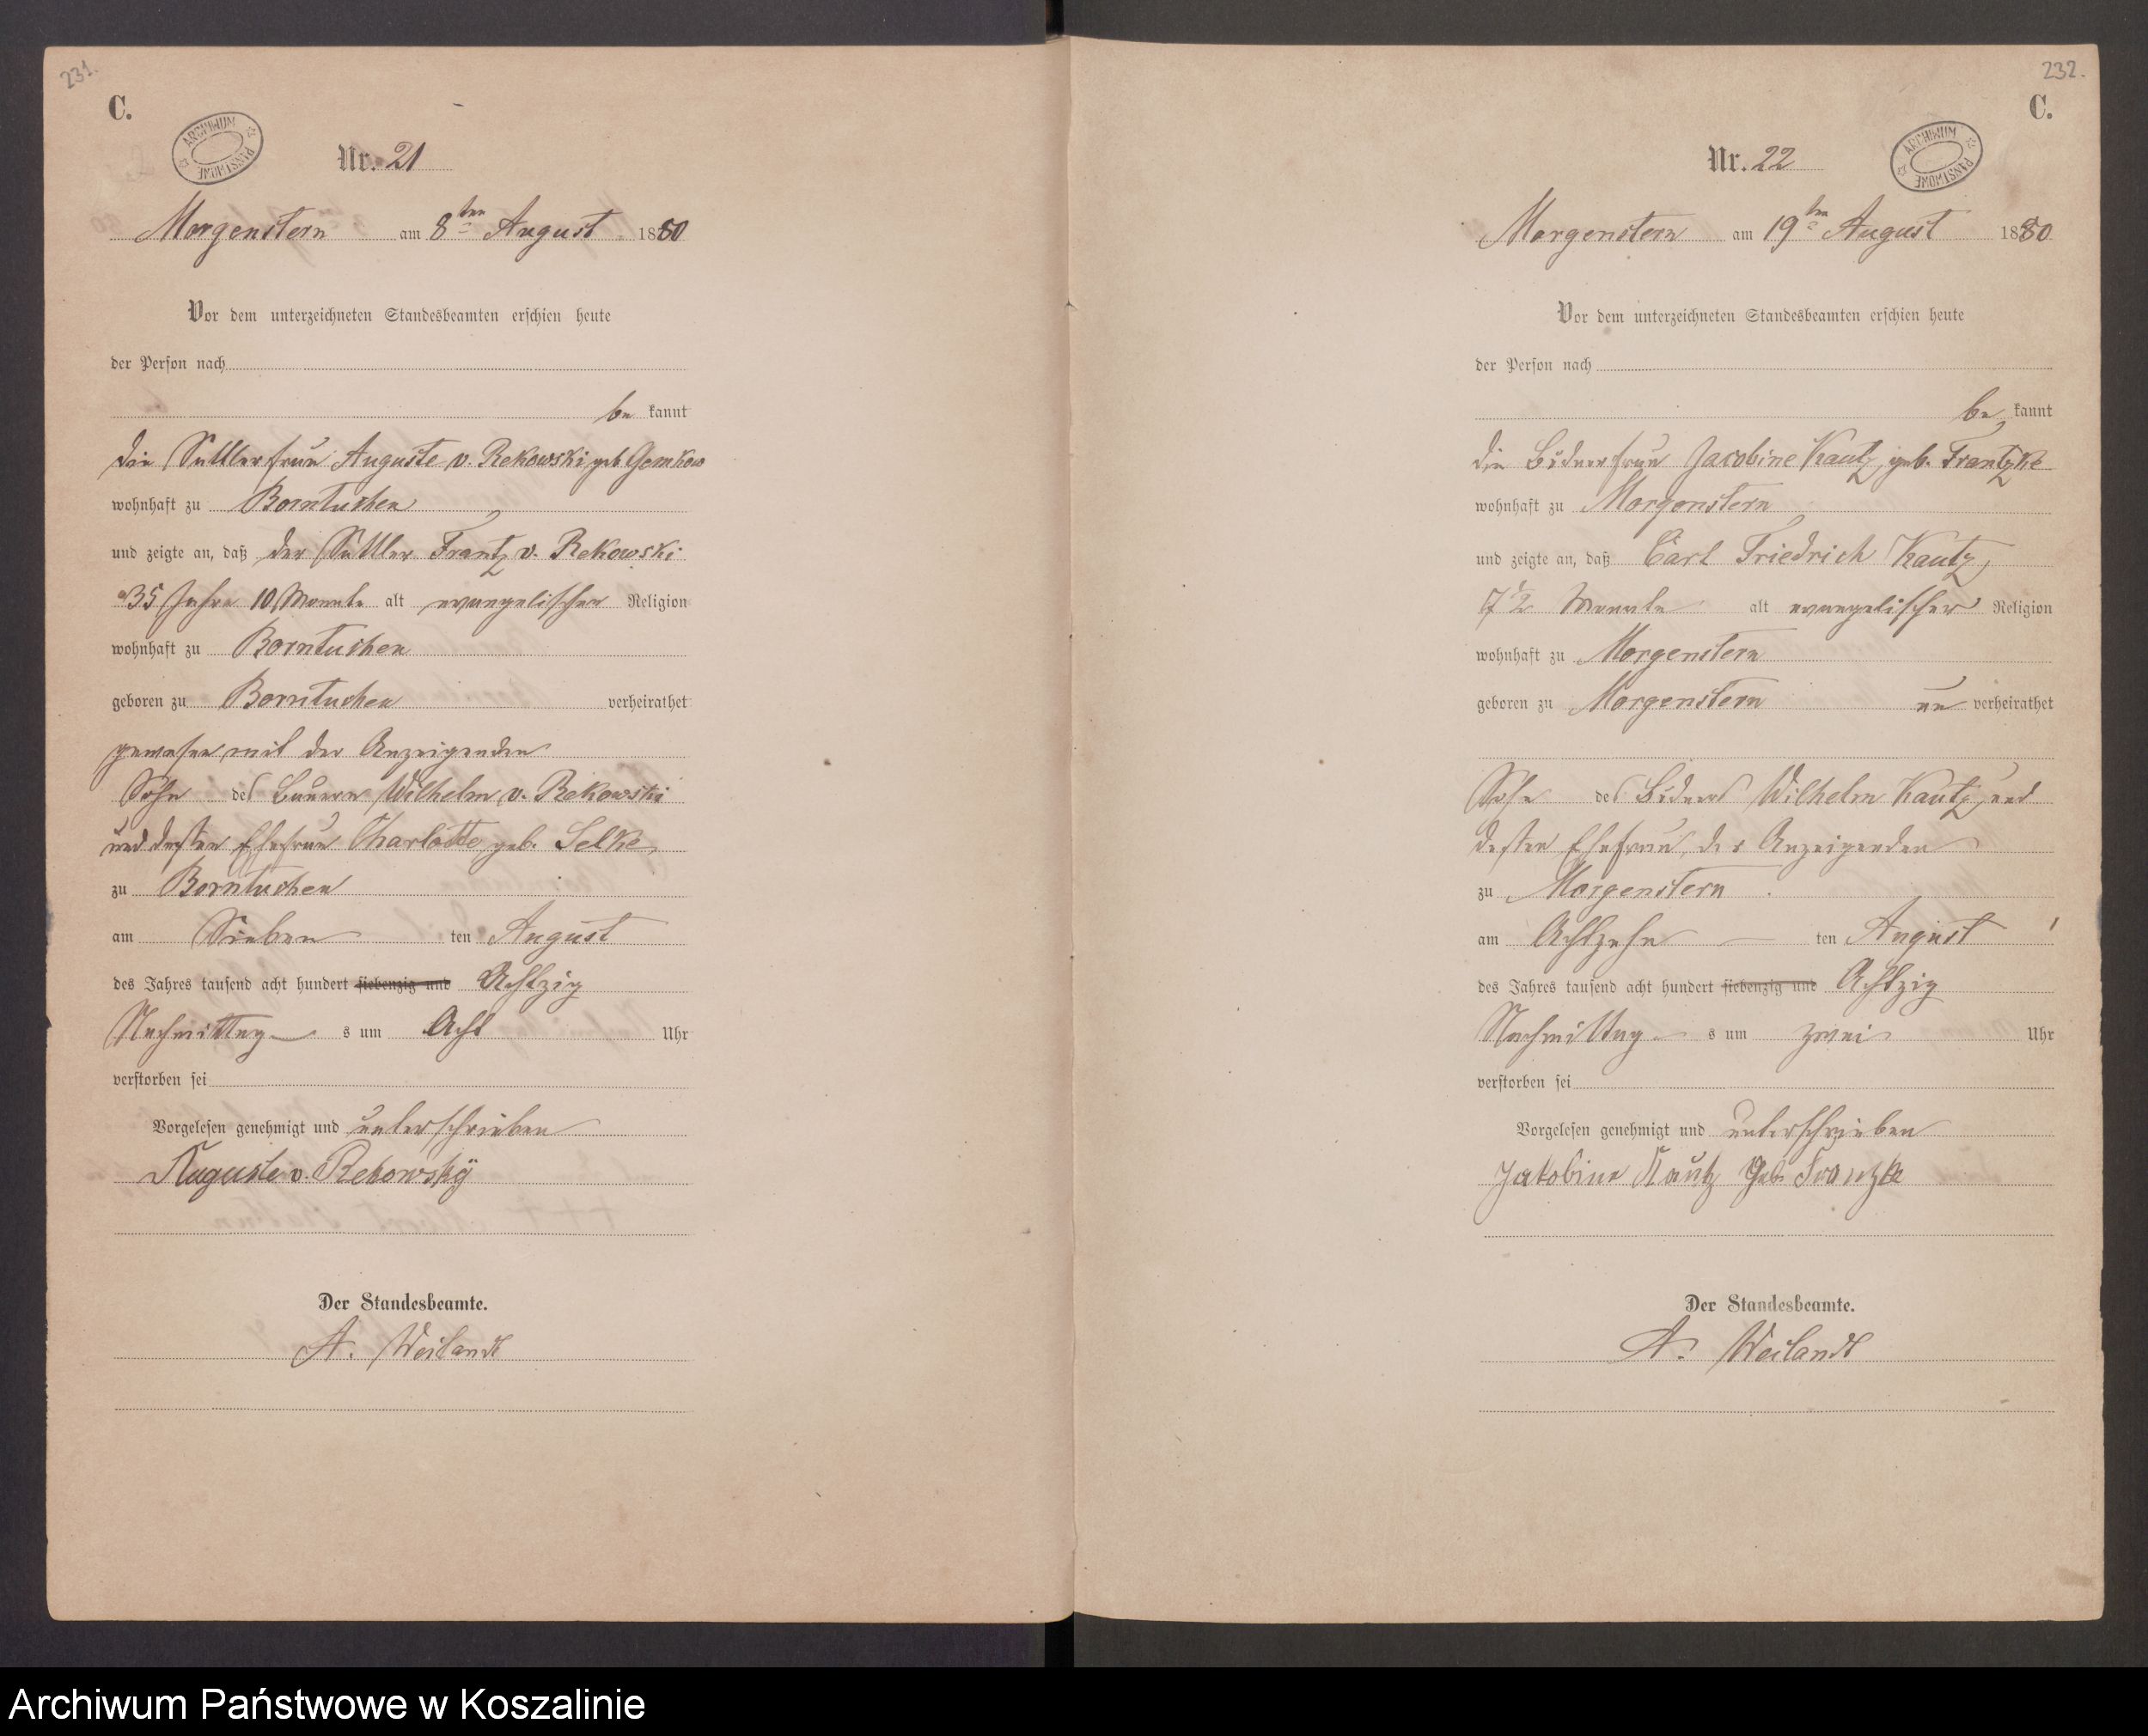 231.
C.
ARCHIWUM PANSTWOWE
Nr. 21
Morgenstern am 8ten August 1880
Vor dem unterzeichneten Standesbeamten erschien heute
der Person nach
be kannt
die Sattlerfrau Auguste v. Rekowski geb. Gemkow
wohnhaft zu Borntuchen
und zeigte an, daß der Sattler Frantz v. Rekowski
35 Jahre 10 Monate alt evangelischer Religion
wohnhaft zu Borntuchen
geboren zu Borntuchen verheirathet
gewesen mit der Anzeigenden
Sohn des Bauern Wilhelm v. Rekowski
und dessen Ehefrau Charlotte geb. Selke,
zu Borntuchen
am Sieben ten August
des Jahres tausend acht hundert siebenzig und Achtzig
Nachmittag s um Acht Uhr
verstorben sei
Vorgelesen genehmigt und unterschrieben
Auguste v. Rekowsky
Der Standesbeamte.
A. Weilandt
232.
C.
ARCHIWUM PANSTWOWE
Nr. 22
Morgenstern am 19ten August 1880
Vor dem unterzeichneten Standesbeamten erschien heute
der Person nach
be kannt
die Büdnerfrau Jacobine Kautz, geb. Frantzke
wohnhaft zu Morgenstern
und zeigte an, daß Carl Friedrich Kautz,
7 1/2 Monate alt evangelischer Religion
wohnhaft zu Morgenstern
geboren zu Morgenstern un verheirathet
Sohn des Büdners Wilhelm Kautz, und
dessen Ehefrau, der Anzeigenden
zu Morgenstern
am Achtzehn ten August
des Jahres tausend acht hundert siebenzig und Achtzig
Nachmittag s um zwei Uhr
verstorben sei
Vorgelesen genehmigt und unterschrieben
Jakobine Kautz Geb. Franzke
Der Standesbeamte.
A. Weilandt
Archiwum Państwowe w Koszalinie